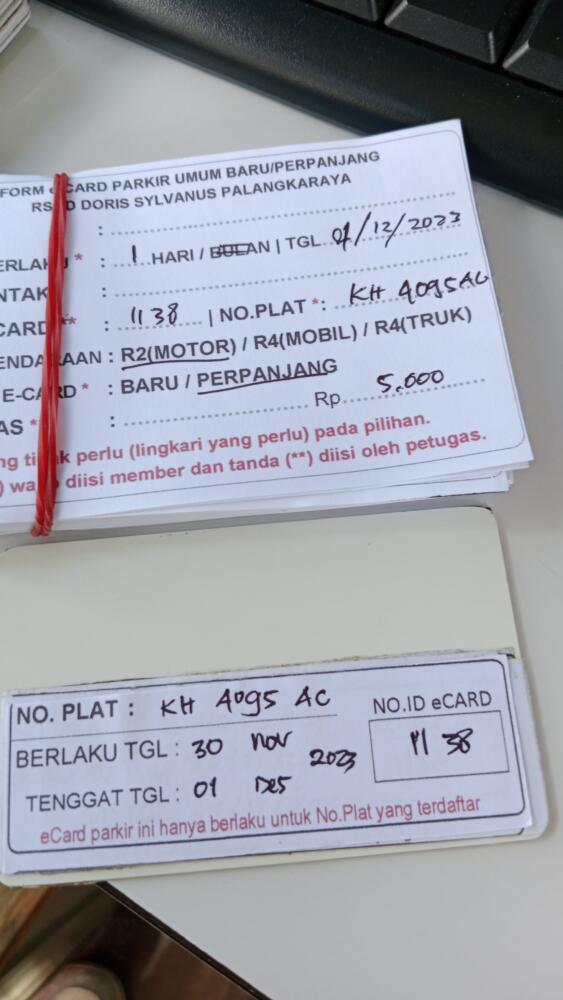 FORM eCARD PARKIR UMUM BARU/PERPANJANG
RS D DORIS SYLVANUS PALANGKARAYA
: ........
ERLAKU * : 1 HARI / BULAN | TGL. 01/12/2023
NTAK : ........
CARD ** : 1138 | NO.PLAT *: KH 4095 AC
ENDARAAN : R2(MOTOR) / R4(MOBIL) / R4(TRUK)
E-CARD * : BARU / PERPANJANG
AS ** : ........ Rp. 5.000
ng tidak perlu (lingkari yang perlu) pada pilihan.
) wa diisi member dan tanda (**) diisi oleh petugas.
NO. PLAT : KH 4095 AC
NO.ID eCARD
BERLAKU TGL : 30 Nov 2023
1138
TENGGAT TGL : 01 Des
eCard parkir ini hanya berlaku untuk No.Plat yang terdaftar